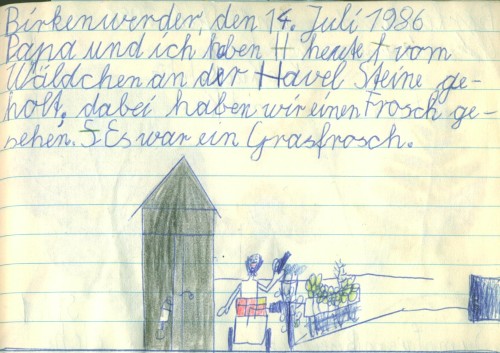 Birkenwerder, den 14. Juli 1986
Papa und ich haben H heute t vom
Wäldchen an der Havel Steine ge-
holt, dabei haben wir einen Frosch ge-
sehen. S Es war ein Grasfrosch.